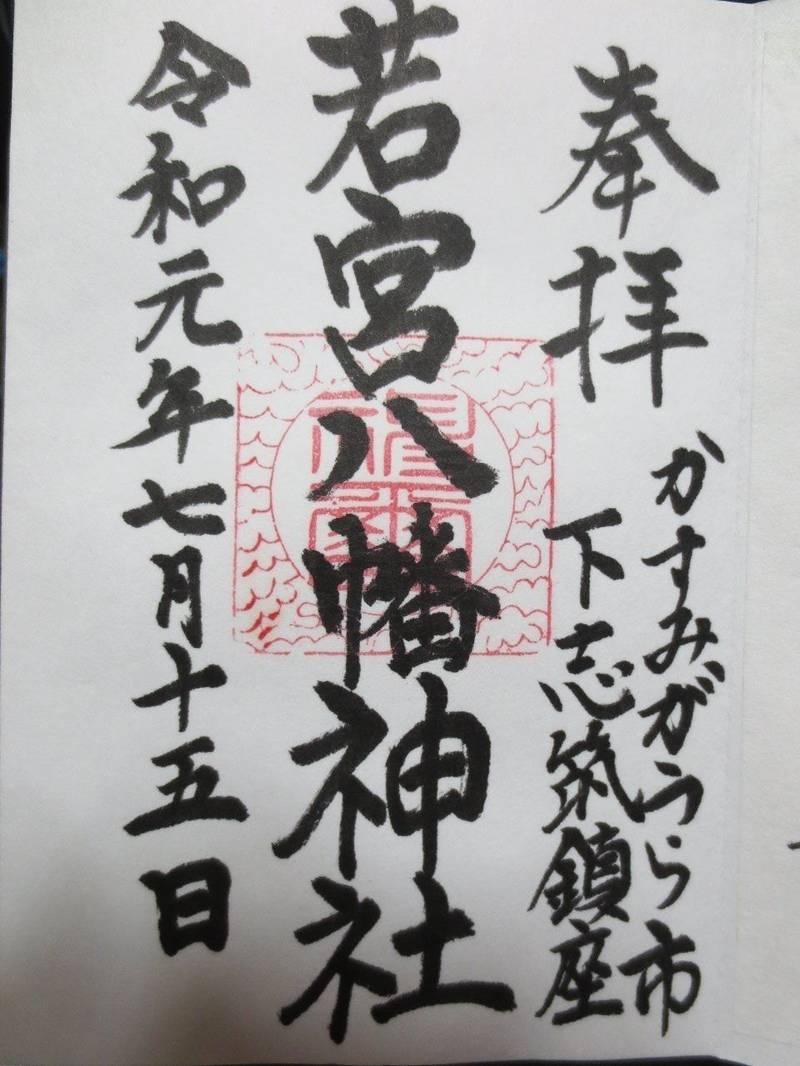 奉拝
かすみがうら市
下志筑鎮座
若宮八幡神社
令和元年七月十五日